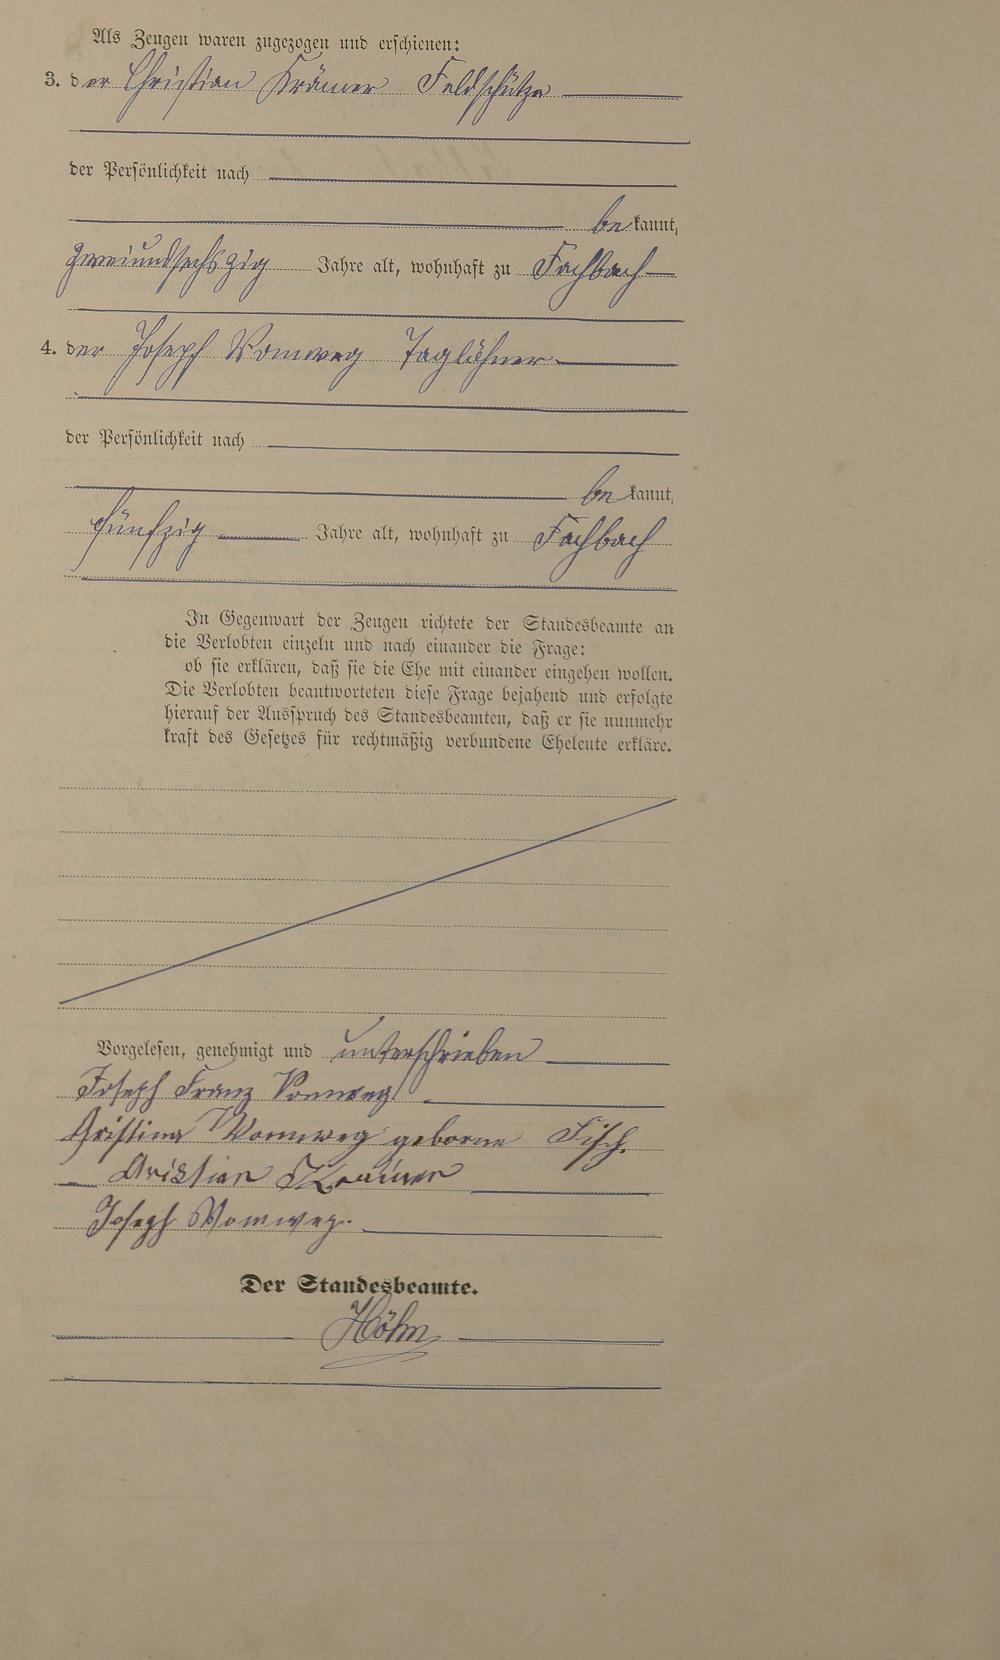 Als Zeugen waren zugezogen und erschienen:
3. der Christian Krämer Feldschütze
der Persönlichkeit nach
be kannt,
zweiundsechszig Jahre alt, wohnhaft zu Fachbach
4. der Joseph Vomweg Taglöhner
der Persönlichkeit nach
be kannt,
fünfzig Jahre alt, wohnhaft zu Fachbach
In Gegenwart der Zeugen richtete der Standesbeamte an
die Verlobten einzeln und nach einander die Frage:
ob sie erklären, daß sie die Ehe mit einander eingehen wollen.
Die Verlobten beantworteten diese Frage bejahend und erfolgte
hierauf der Ausspruch des Standesbeamten, daß er sie nunmehr
kraft des Gesetzes für rechtmäßig verbundene Eheleute erkläre.
Vorgelesen, genehmigt und unterschrieben
Joseph Franz Vomweg
Cristina Vomweg geborne Fisch.
Cristian Kraemer
Joseph Vomweg.
Der Standesbeamte.
Höhn